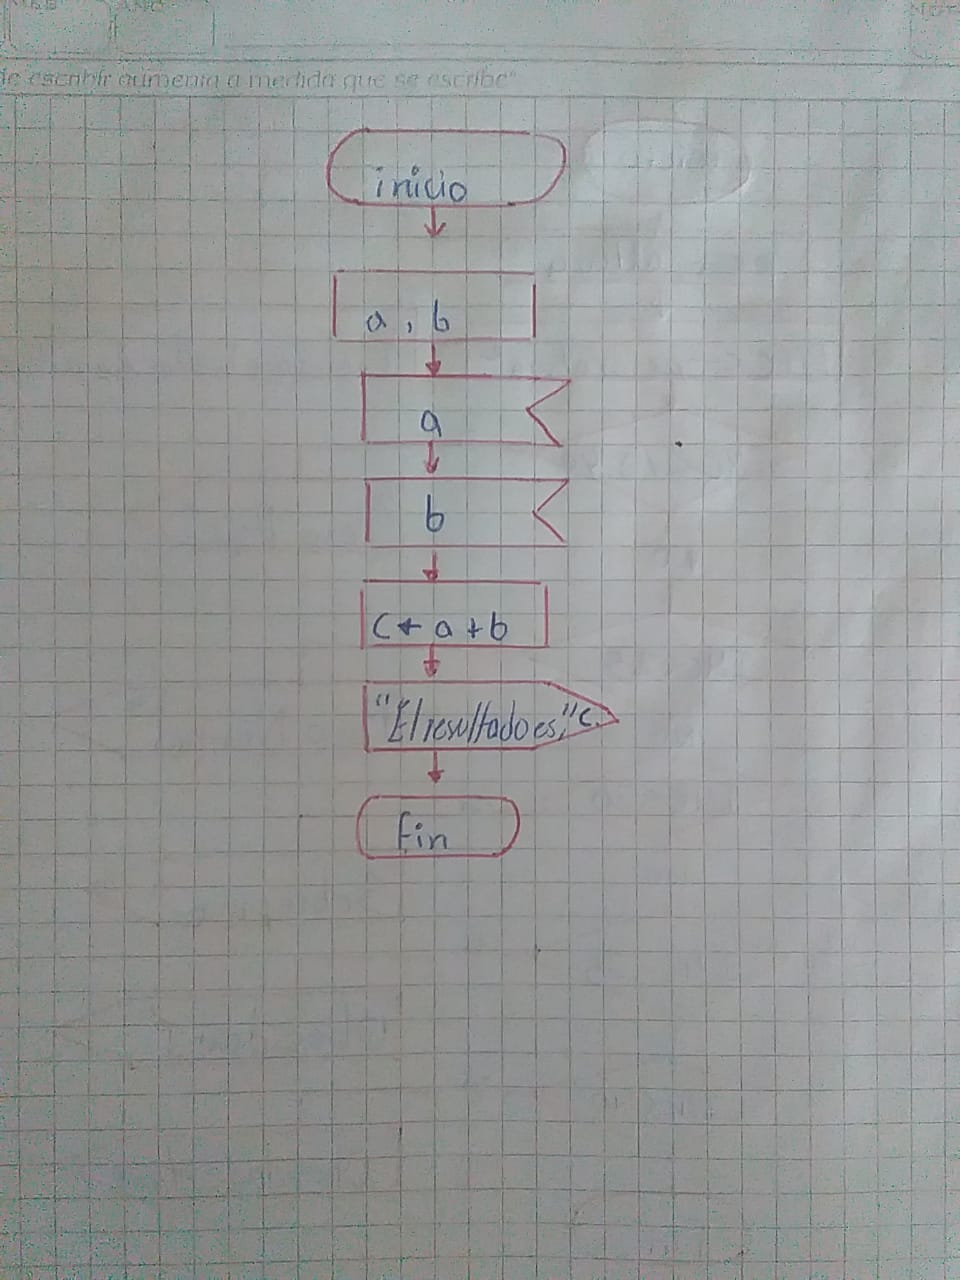 de escribir aumenta a medida que se escribe"
inicio
a, b
a
b
C ← a + b
"El resultado es," c.
fin